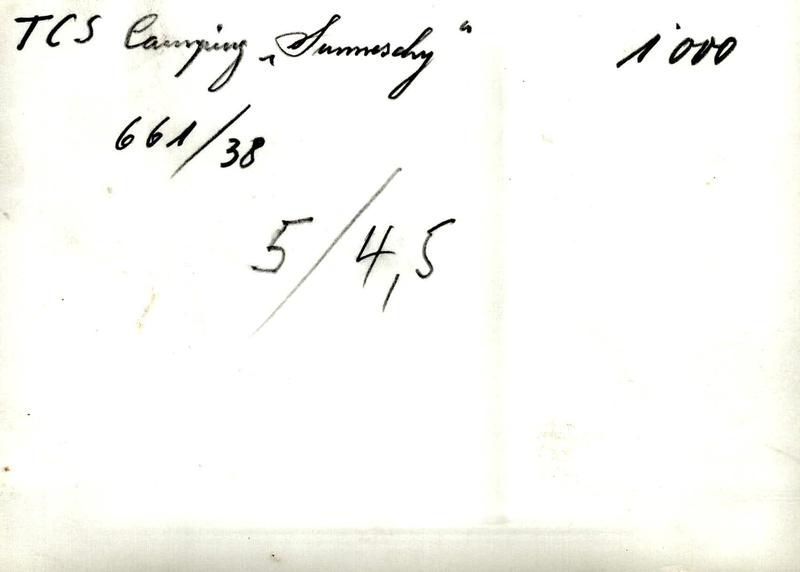 TCS Camping „Sunneschy“ 1'000
661/38
5/4,5